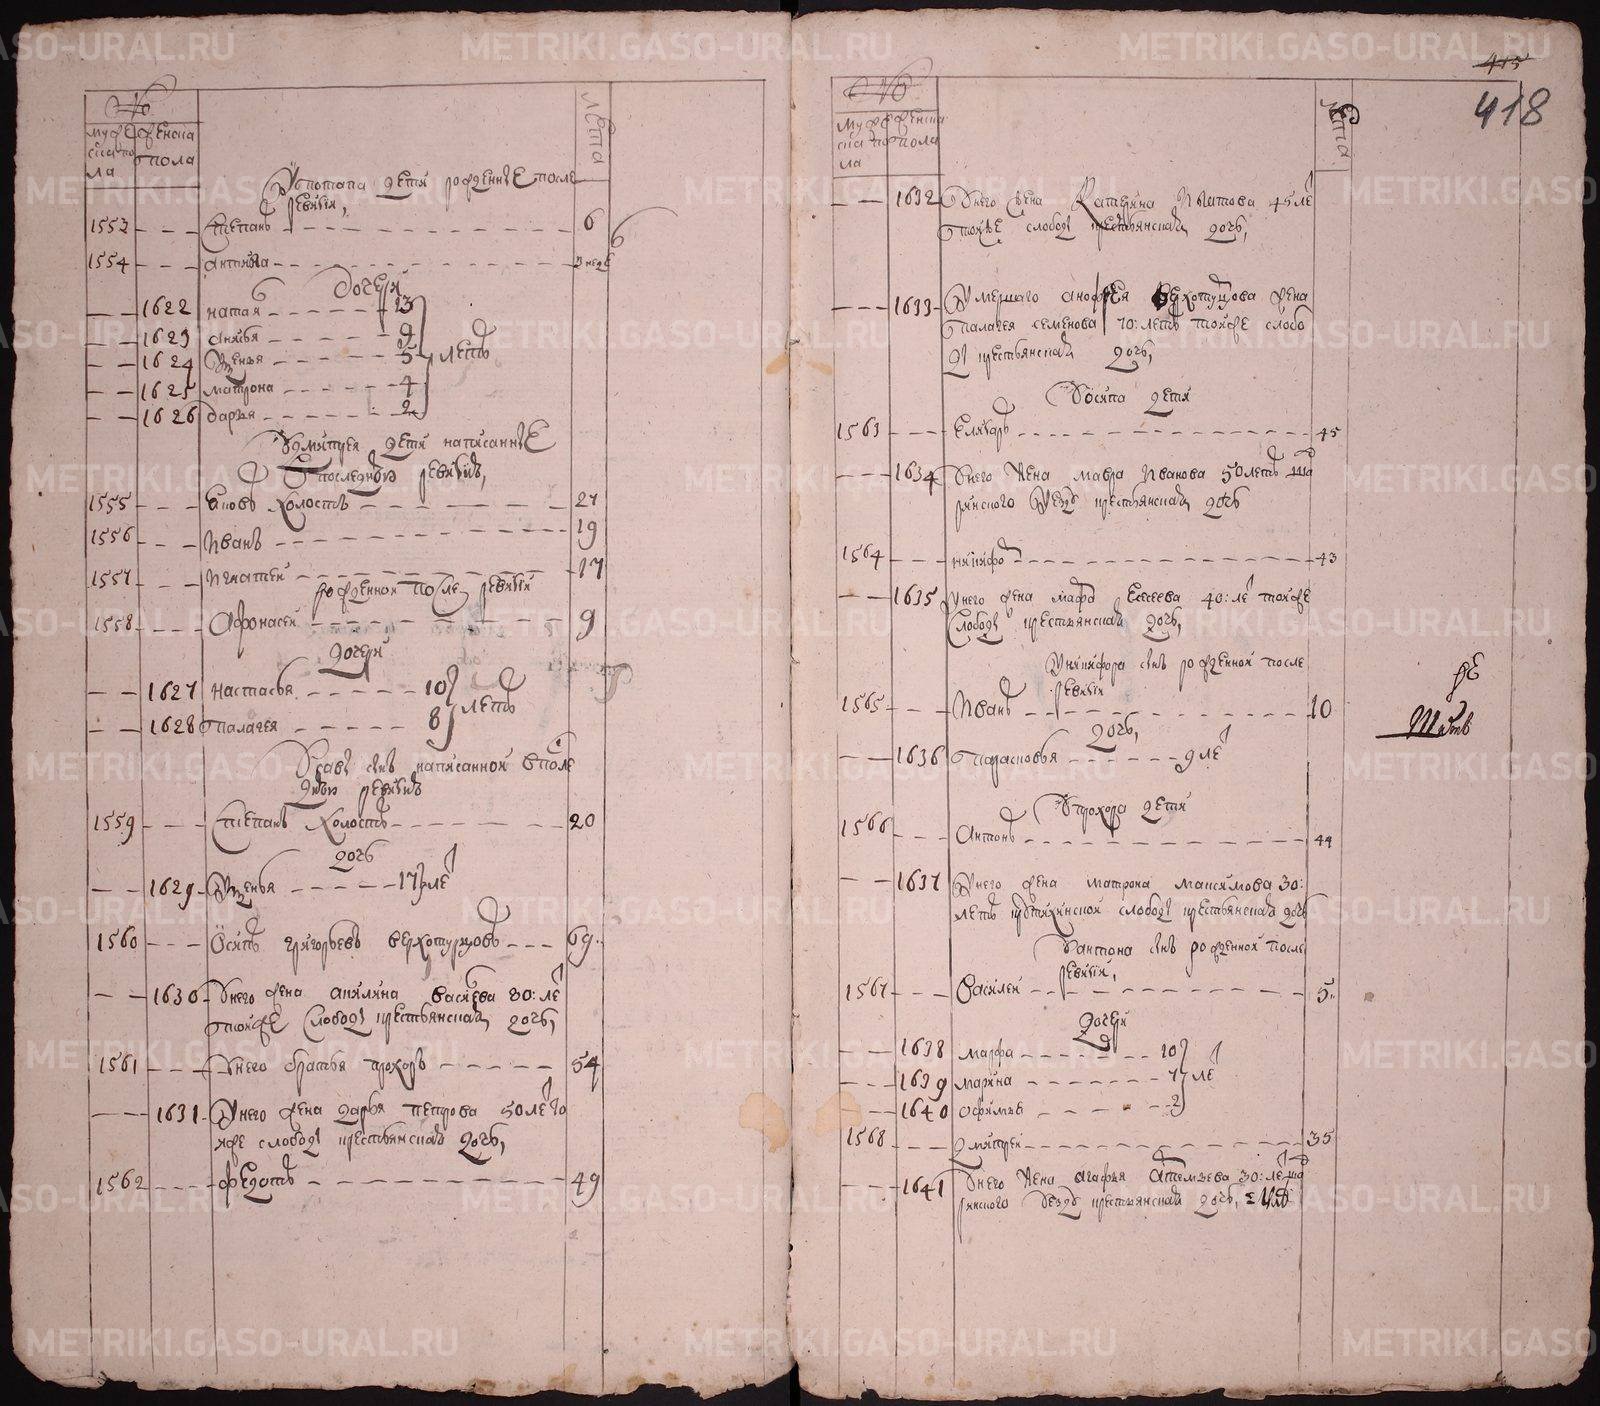 №
мужеска пола
женска пола
лѣта
У потапа дети рожденные после
ревизии,
1553 степанъ 6
1554 антипа 3 неде
дочери
1622 наталья 13
1623 анисья 9
1624 Устинья 5 летъ
1625 матрона 4
1626 дарья 2
У дмитрея дети написанные
в последнюю ревизию,
1555 Яковъ холостъ 21
1556 Иванъ 19
1557 Игнатей 17
рожденной после ревизии
1558 Афонасей 9
дочери
1627 настасья 10 летъ
1628 палагея 8
У савы сынъ написанной в после
днюю ревизию
1559 Степанъ холостъ 20
дочь
1629 Устинья 17 ле
1560 Осипъ григорьевъ верхотурцовъ 69
1630 У него жена Васильева 30: ле
тойже слободы крестьянская дочь,
1561 У него братья прохоръ 54
1631 У него жена дарья петрова 50 ле то
йже слободы крестьянская дочь,
1562 федотъ 49
415
418
№
мужеска пола
женска пола
лѣта
1632 У него жена Катерина 45 ле
тойже слободы крестьянская дочь,
1633 Умершаго анофрея верхотурцова жена
палагея семенова 70: летъ тойже слобо
ды крестьянская дочь,
У осипа дети
1563 Елизаръ 45
1634 У него жена мавра Иванова 50 летъ ша
дринского уезду крестьянская дочь
1564 никифоръ 43
1635 У него жена марфа Елесеева 40: ле тойже
слободы крестьянская дочь,
У никифора сынъ рожденной после
ревизии
1565 Иванъ 10
дочь,
1636 парасковья 9 ле
У прохора дети
1566 Антонъ 44
1637 У него жена матрона максимова 30:
летъ слободы крестьянская дочь
У антона сынъ рожденной после
ревизии,
1567 Василей 5
дочери
1638 марфа 10
1639 марина 7 ле
1640 офимья 2
1568 дмитрей 35
1641 У него жена агафья 30: ле ша
дринского уезду крестьянская дочь,